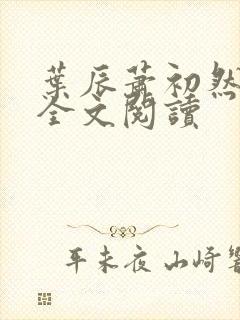 葉辰蕭初然
全文閱讀
平未夜 山崎響